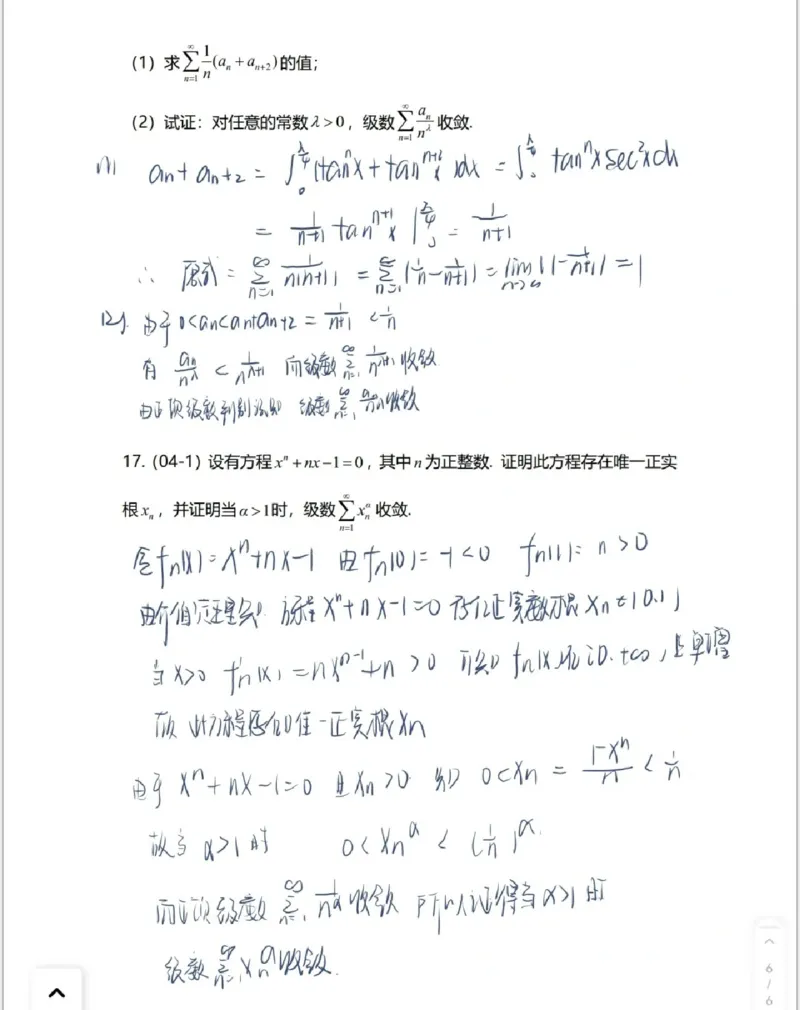 (1) 求∑_{n=1}^{∞} 1/n (a_n + a_{n+2})的值;
(2) 试证: 对任意的常数λ>0, 级数∑_{n=1}^{∞} a_n/n^λ 收敛.
(1) a_n + a_{n+2} = ∫_0^{π/4} (tan^n x + tan^{n+2} x) dx = ∫_0^{π/4} tan^n x sec²x dx
= 1/(n+1) tan^{n+1} x |_0^{π/4} = 1/(n+1)
∴ 原式 = ∑_{n=1}^{∞} 1/(n(n+1)) = ∑_{n=1}^{∞} (1/n - 1/(n+1)) = lim_{n→∞} (1 - 1/(n+1)) = 1
(2) 由于 0<a_n<a_n+a_{n+2} = 1/(n+1) < 1/n
有 a_n/n^λ < 1/n^{λ+1} 而级数 ∑_{n=1}^{∞} 1/n^{λ+1} 收敛
由正项级数判别法知 级数 ∑_{n=1}^{∞} 收敛
17. (04-1) 设有方程 x^n + nx - 1 = 0, 其中 n 为正整数. 证明此方程存在唯一正实
根 x_n, 并证明当 α>1 时, 级数∑_{n=1}^{∞} x_n^α 收敛.
令 f_n(x) = x^n + nx - 1 由 f_n(0) = -1 < 0 f_n(1) = n > 0
由介值定理知 方程 x^n + nx - 1 = 0 存在正实数根 x_n ∈ (0,1)
当 x>0 f_n'(x) = nx^{n-1} + n > 0 可知 f_n(x) 在 [0,+∞) 上单增
故 此方程存在唯一正实根 x_n
由于 x^n + nx - 1 = 0 且 x_n > 0 知 0<x_n = (1-x^n)/n < 1/n
故当 α>1 时 0 < x_n^α < (1/n)^α.
而正项级数 ∑_{n=1}^{∞} 1/n^α 收敛 所以证得当 α>1 时
级数 ∑_{n=1}^{∞} x_n^α 收敛.
6
/
6